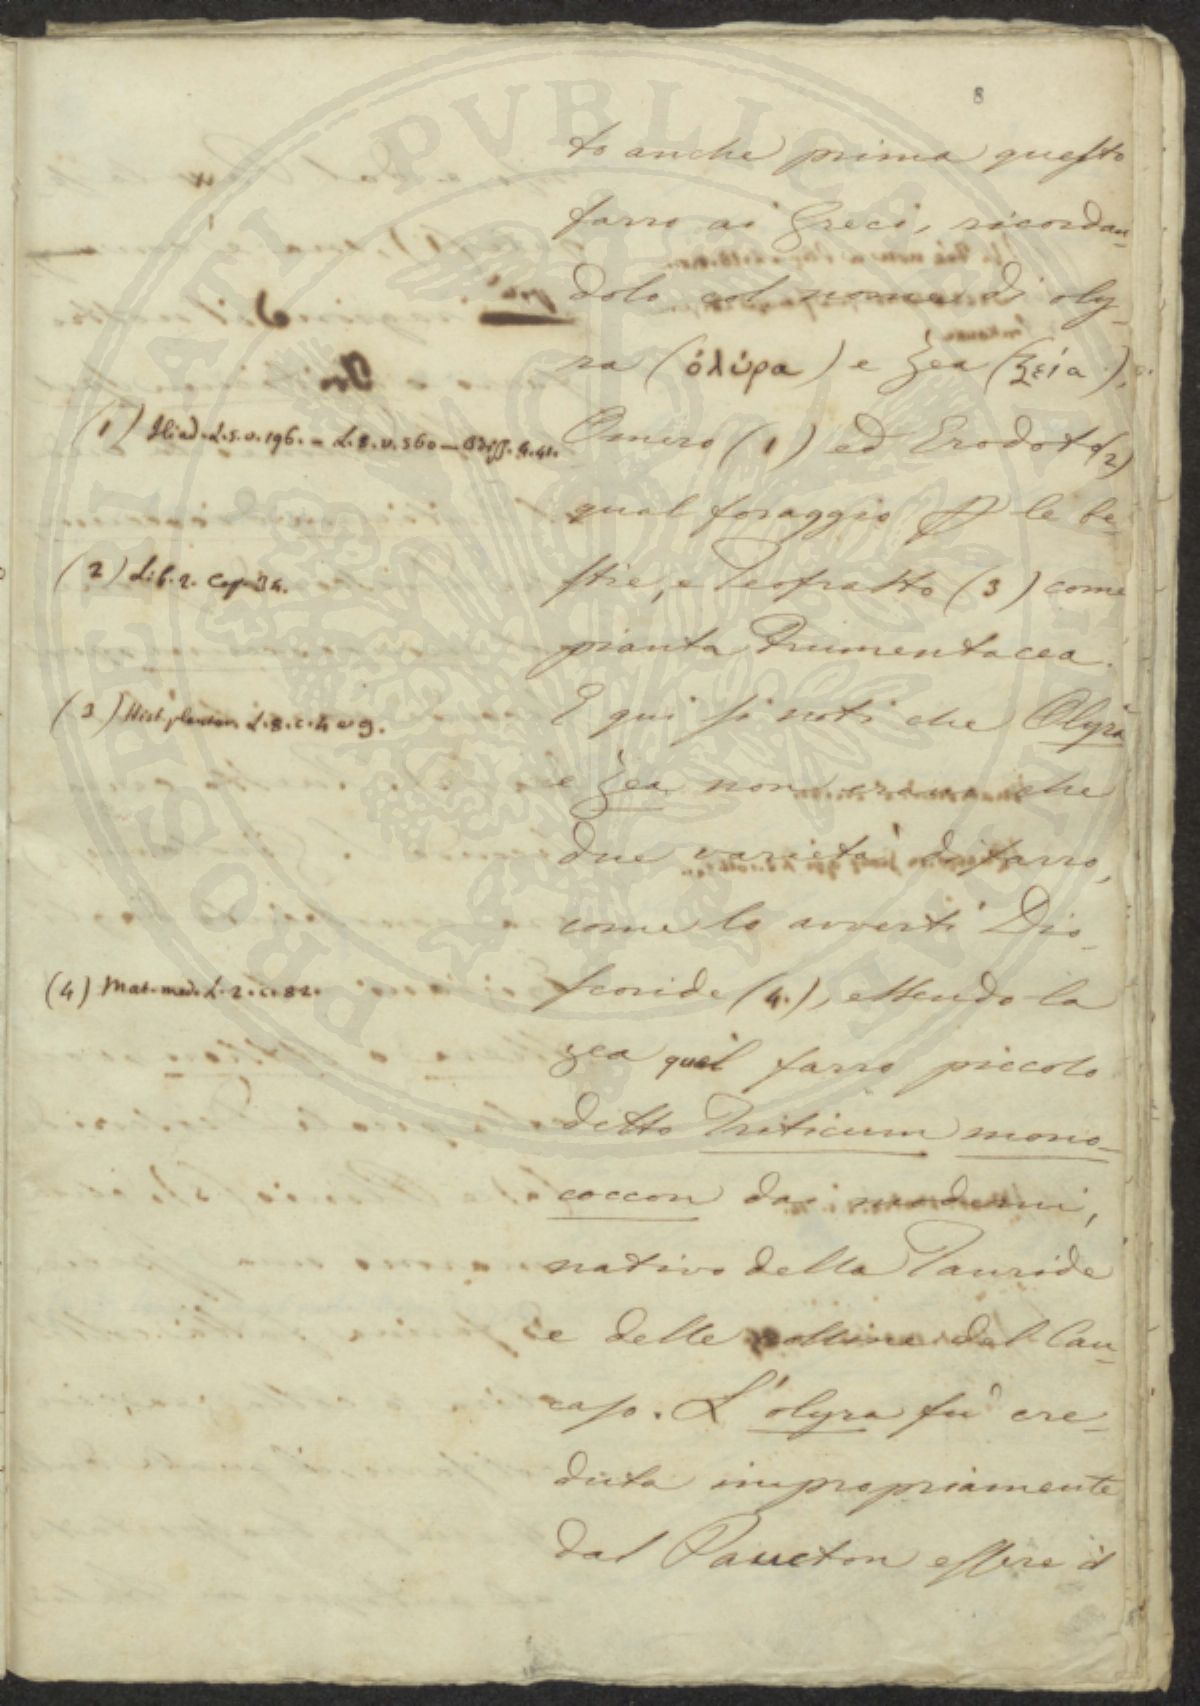 8
to anche prima questo
farro ai Greci, ricordan-
dolo col nome di oly-
ra (ὀλύρα) e zea (ζεία),
Omero (1) ed Erodoto (2)
qual foraggio le be-
stie, e Teofrasto (3) come
pianta frumentacea.
E qui si noti che Olyra
e zea non erano che
due varietà di farro,
come lo avvertì Dio-
scoride (4.), essendo la
zea quel farro piccolo
detto Triticum mono-
coccon dai moderni,
nativo della Tauride
e delle colline del Cau-
caso. L'olyra fu cre-
duta impropriamente
dal Paucton essere il
(1) Iliad. L.5.v.196. = L.8.v.560 — Odiss. 4.41.
(2) Lib. 2. Cap. 34.
(3) Hist. plantar. L.8.c.4 e 9.
(4) Mat. med. L.2.c.82.
PROSPERI PUBLICAE